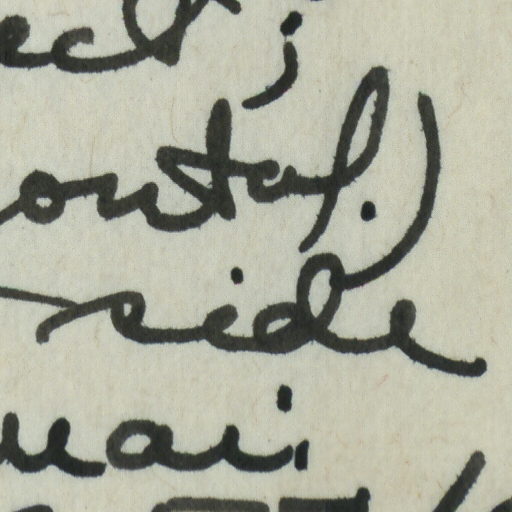 ect;
ontal.)
side
uai